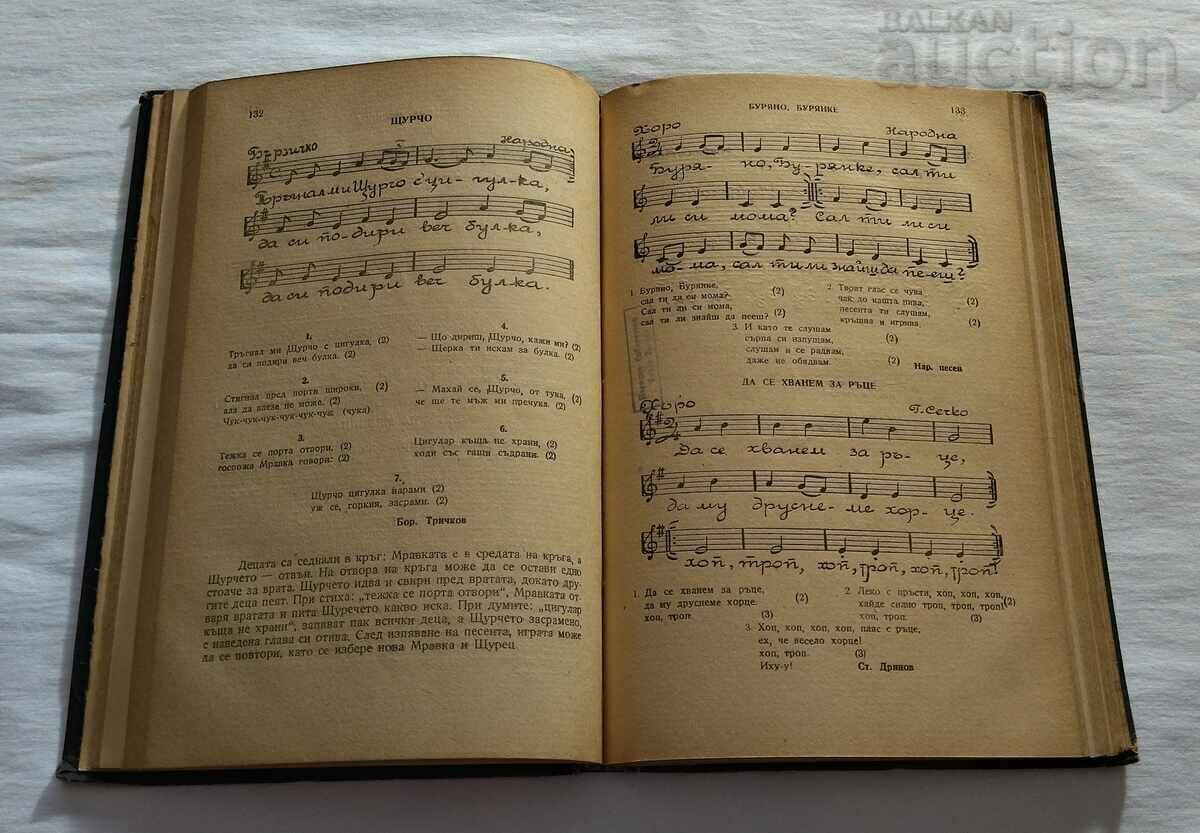 BALKAN
auction
132
ЩУРЧО
Бързичко
Народна
Тръгнал ми Щурчо с ци- гул-ка,
да си по-дири веч бул-ка,
да си подири веч булка.
1.
Тръгнал ми Щурчо с цигулка, (2)
да си подири веч булка. (2)
2.
Стигнал пред порти широки, (2)
ала да влезе не може. (2)
Чук-чук-чук-чук-чук-чук (чука)
3.
Тежка се порта отвори, (2)
госпожа Мравка говори: (2)
4.
— Що дириш, Щурчо, кажи ми? (2)
— Щерка ти искам за булка. (2)
5.
— Махай се, Щурчо, от тука, (2)
че ще те мъж ми пречука. (2)
6.
Цигулар къща не храни, (2)
ходи със гащи съдрани. (2)
7.
Щурчо цигулка нарами (2)
уж се, горкия, засрами. (2)
Бор. Тричков
Децата са седнали в кръг: Мравката е в средата на кръга, а
Щурчето — отвън. На отвора на кръга може да се остави едно
столче за врата. Щурчето идва и свири пред вратата, докато дру-
гите деца пеят. При стиха: „тежка се порта отвори“, Мравката от-
варя вратата и пита Щуречето какво иска. При думите: „цигулар
къща не храни“, запяват пак всички деца, а Щурчето засрамено,
с наведена глава си отива. След изпяване на песента, играта може
да се повтори, като се избере нова Мравка и Щурец
БУРЯНО, БУРЯНКЕ
133
Хоро
Народна
Буря- но, Бу- рянке, сал ти
ли си мома? Сал ти ли си
мо-ма, сал ти ли знайш да пе-еш?
1. Буряно, Бурянке,
сал ти ли си мома? (2)
Сал ти ли си мома,
сал ти ли знайш да пееш? (2)
2. Твоят глас се чува
чак до нашта нива, (2)
песента ти слушам,
кръшна и игрива. (2)
3. И като те слушам
сърпа си изпущам, (2)
слушам и се радвам,
даже не обядвам. (2)
Нар. песен
ДА СЕ ХВАНЕМ ЗА РЪЦЕ
Хоро
Г. Сечко
Да се хванем за ръ- це,
да му друсне- ме хор- це.
хоп, троп, хоп, троп, хоп, троп!
1. Да се хванем за ръце,
да му друснеме хорце. (2)
хоп, троп. (3)
2. Леко с пръсти, хоп, хоп, хоп,
хайде силно троп, троп, троп! (2)
хоп, троп. (3)
3. Хоп, хоп, хоп, хоп, пляс с ръце,
ех, че весело хорце!
хоп, троп. (3)
Иху-у!
Ст. Дринов